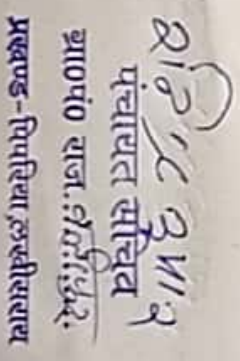 कुमार
पंचायत सचिव
ग्रा०पं० राज.वलीपुर.
प्रखण्ड-पिपरिया,लखीसराय